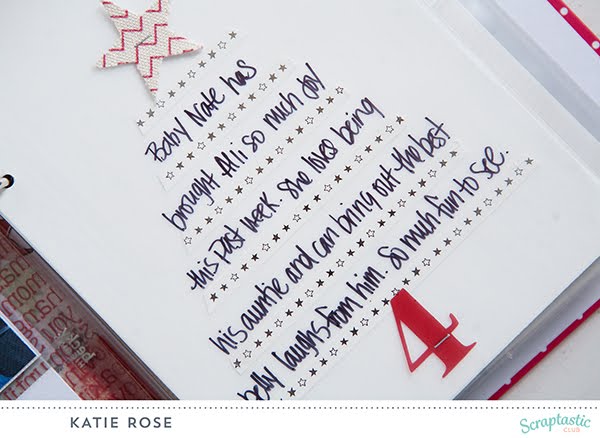 Baby Nate has
brought Ali so much joy
this past week. She loves being
his auntie and can bring out the best
belly laughs from him. So much fun to see.
4
KATIE ROSE
Scraptastic
CLUB